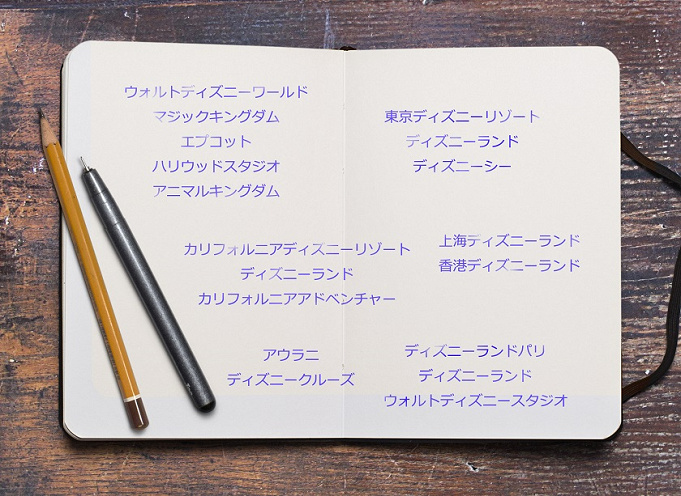 ウォルトディズニーワールド
マジックキングダム
エプコット
ハリウッドスタジオ
アニマルキングダム
東京ディズニーリゾート
ディズニーランド
ディズニーシー
カリフォルニアディズニーリゾート
ディズニーランド
カリフォルニアアドベンチャー
上海ディズニーランド
香港ディズニーランド
アウラニ
ディズニークルーズ
ディズニーランドパリ
ディズニーランド
ウォルトディズニースタジオ